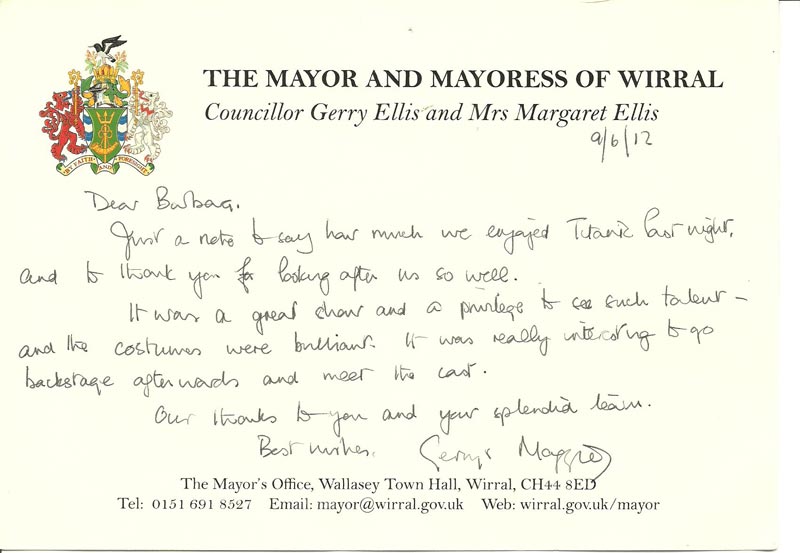 THE MAYOR AND MAYORESS OF WIRRAL
Councillor Gerry Ellis and Mrs Margaret Ellis
9/6/12
BY FAITH AND FORESIGHT
Dear Barbara.
Just a note to say how much we enjoyed Titanic last night,
and to thank you for looking after us so well.
It was a great show and a privilege to see such talent –
and the costumes were brilliant. It was really interesting to go
backstage afterwards and meet the cast.
Our thanks to you and your splendid team.
Best wishes.
Gerry & Maggie
The Mayor's Office, Wallasey Town Hall, Wirral, CH44 8ED
Tel: 0151 691 8527 Email: mayor@wirral.gov.uk Web: wirral.gov.uk/mayor